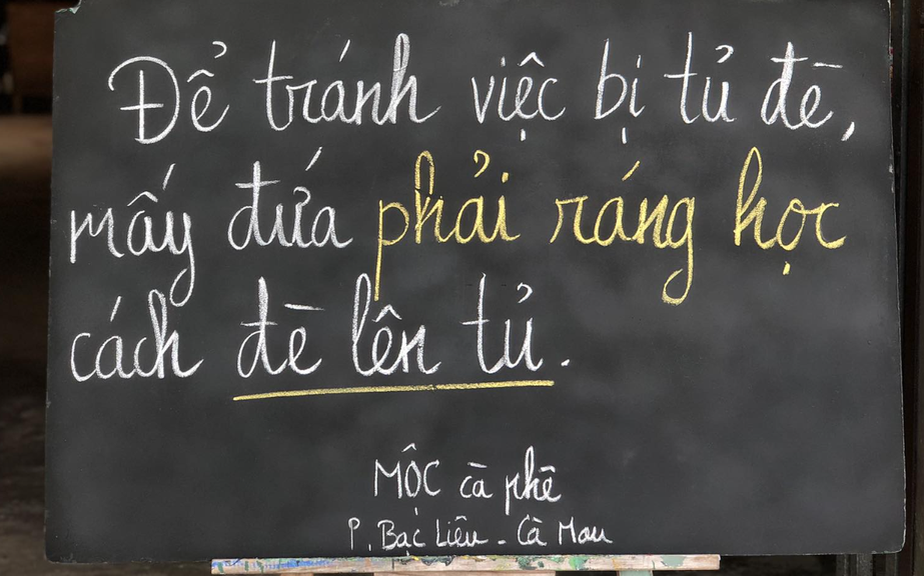 Để tránh việc bị tủ đè,
mấy đứa phải ráng học
cách đè lên tủ.
MỘC cà phê
P. Bạc Liêu - Cà Mau